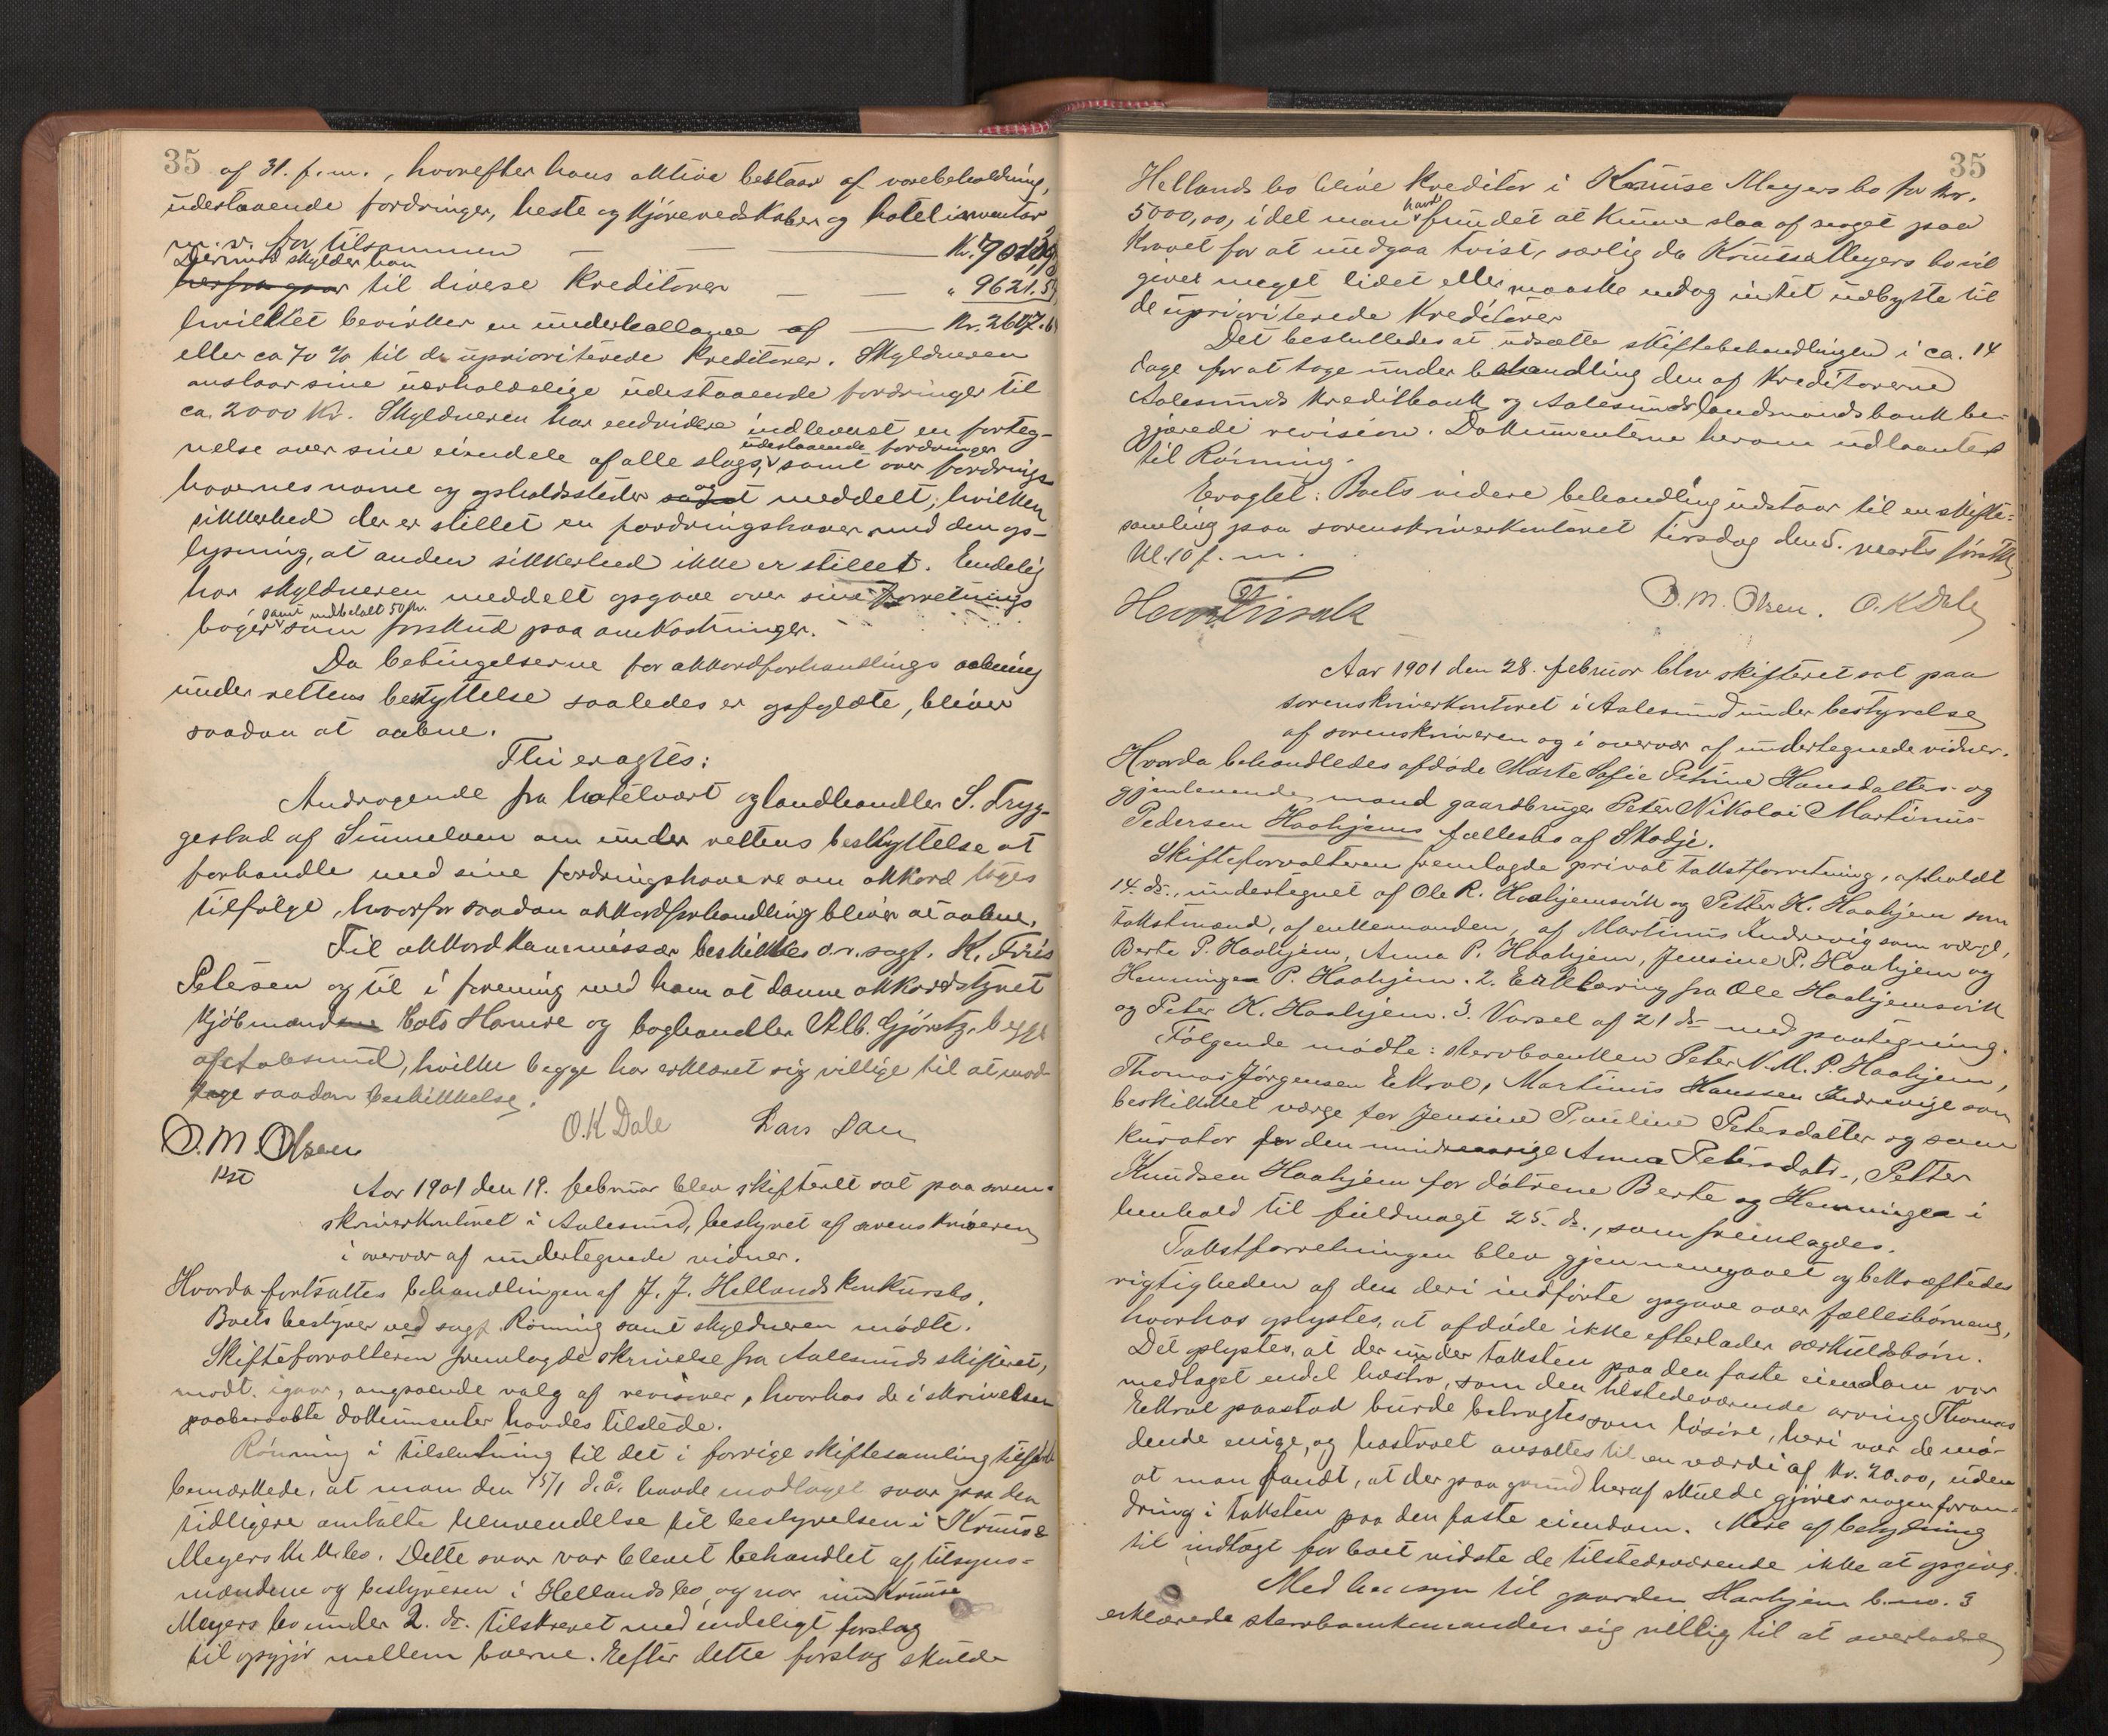 35
af 31. f.m., hvorefter hans aktiva bestaar af varebeholdning,
udestaaende fordringer, heste og kjøreredskaber og hotelinventar
m.v. for tilsammen — Kr.
Derimod skylder han
herfra gaar til diverse kreditorer — " 9621.5
hvilket bevirker en underballance af — Kr. 2607.
eller ca 70 % til de uprioriterede kreditorer. Skyldneren
anslaar sine uerholdelige udestaaende fordringer til
ca. 2000 Kr. Skyldneren har endvidere indleveret en forteg-
udestaaende fordringer
nelse over sine eiendele af alle slags, samt over fordrings
havernes navne og opholdssteder og meddelt, hvilken
sikkerhed der er stillet en fordringshaver med den op-
lysning, at anden sikkerhed ikke er stillet. Endelig
har skyldneren meddelt opgave over sine forretnings
samt indbetalt 50 kr.
bøger som forskud paa omkostninger.
Da betingelserne for akkordforhandlings aabning
under rettens beskyttelse saaledes er opfyldte, bliver
saadan at aabne.
Thi eragtes:
Andragende fra hotelvært og landhandler S. Tryg-
gestad af Sunnelven om under rettens beskyttelse at
forhandle med sine fordringshavere om akkord tages
tilfølge, hvorfor saadan akkordforhandling bliver at aabne.
Til akkordkommissær beskikkes o.r.sagf. K. Friis
Petersen og til i forening med ham at danne akkordstyret
kjøbmand Hamre og boghandler Alb. Gjørtz, begge
af Aalesund, hvilke begge har erklæret sig villige til at mod-
tage saadan beskikkelse.
O.M. Olsen O.K Dale Lars Dau
kst
Aar 1901 den 19. februar blev skifteret sat paa soren-
skriverkontoret i Aalesund, bestyret af sorenskriveren
i overvær af undertegnede vidner.
Hvorda fortsattes behandlingen af J. J. Hellands konkursbo.
Boets bestyrer ved sagf. Rønning samt skyldneren mødte.
Skifteforvalteren fremlagde skrivelse fra Aalesunds skifteret,
modt. igaar, angaaende valg af revisorer, hvorhos de i skrivelsen
paaberaabte dokumenter havdes tilstede.
Rønning i tilslutning til det i forrige skiftesamling tilførte
bemærkede, at man den 15/1 d.å. havde modtaget svar paa den
tidligere omtalte henvendelse til bestyrelsen i Kruse
Meyers kkbo. Dette svar var blevet behandlet af tilsyns-
mændene og bestyreren i Hellands bo, og var nu Kruse
Meyers bo under 2. ds. tilskrevet med endeligt forslag
til opgjør mellem boerne. Efter dette forslag skulde
35
Hellands bo blive kreditor i Kruse Meyers bo for kr.
5000,00, idet man havde fundet at kunne slaa af noget paa
kravet for at undgaa tvist, særlig da Kruse Meyers bo vil
giver meget lidet eller maaske endog intet udbytte til
de uprioriterede kreditorer
Det besluttedes at udsætte skiftebehandlingen i ca. 14
dage for at tage under behandling den af kreditorerne
Aalesunds kreditbank og Aalesunds landmandsbank be-
gjærede revision. Dokumenterne herom udlaantes
til Rønning.
Eragtet: Boets videre behandling udstaar til en skifte-
samling paa sorenskriverkontoret tirsdag den 5. marts førstk
kl. 10 f.m.
O.M. Olsen. O.K Dale
Aar 1901 den 28. februar blev skifteret sat paa
sorenskriverkontoret i Aalesund under bestyrelse
af sorenskriveren og i overvær af undertegnede vidner.
Hvorda behandledes afdøde Marte Sofie Petrine Hansdatters og
gjenlevende mand gaardbruger Peter Nikolai Martinus
Pedersen Haahjems fællesbo af Skodje.
Skifteforvalteren fremlagde privat takstforretning, afholdt
14. ds., undertegnet af Ole R. Haahjemsvik og Petter K. Haahjem som
takstmænd, af enkemanden, af Martinus Indrevig som værge,
Berte P. Haahjem, Anna P. Haahjem, Jensine P. Haahjem og
Henninge P. Haahjem. 2. Erklæring fra Ole Haahjemsvik
og Peter K. Haahjem. 3. Varsel af 21 ds. med paategning.
Følgende mødte: stervboenken Peter N. M. P. Haahjem,
Thomas Jørgensen Ekrol, Martinus Hanssen Indrevige som
beskikket værge for Jensine Pauline Petersdatter og som
kurator for den mindreaarige Anna Petersdatr., Petter
Knudsen Haahjem for døtrene Berte og Henninge i
henhold til fuldmagt 25. ds., som fremlagdes.
Takstforretningen blev gjennemgaaet og bekræftedes
rigtigheden af den deri indførte opgave over fællesbørnene,
hvorhos oplystes, at afdøde ikke efterlader særkuldsbørn.
Det oplystes, at der under taksten paa den faste eiendom var
medtaget endel høstro, som den tilstedeværende arving Thomas
Ekrol paastod burde betragtes som løsøre, heri var de mø-
dende enige, og høstroet ansattes til en værdi af kr. 20.00, uden
at man fandt, at der paa grund heraf skulde gjøres nogen foran-
dring i taksten paa den faste eiendom. Mere af betydning
til indtægt for boet vidste de tilstedeværende ikke at opgive.
Med hensyn til gaarden Haahjem b.no. 3
erklærede stervboenkemanden sig villig til at overlade